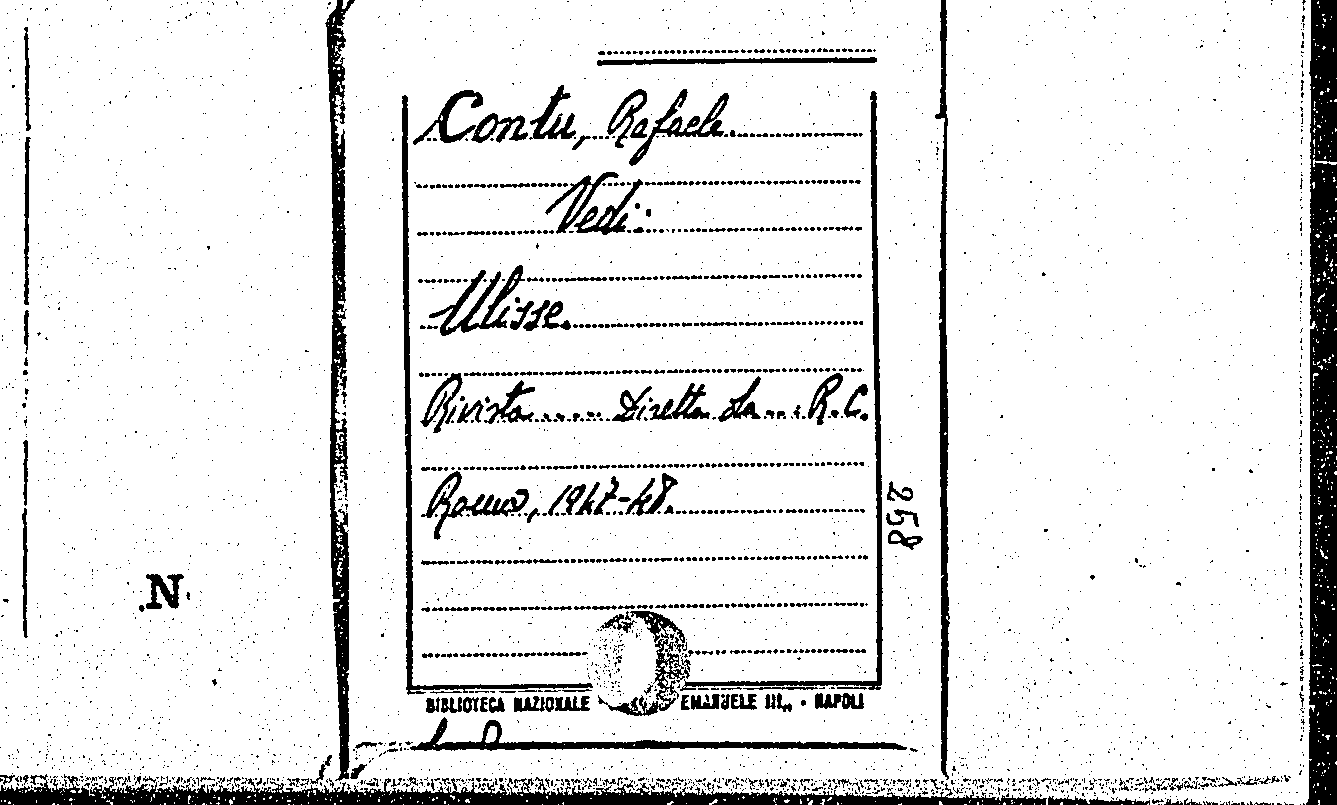 Contu, Rafaele.
Vedi:
Ulisse.
Rivista..... Diretta da...: R.C.
Roma, 1947-48.
258
N
BIBLIOTECA NAZIONALE EMANUELE III„ - NAPOLI